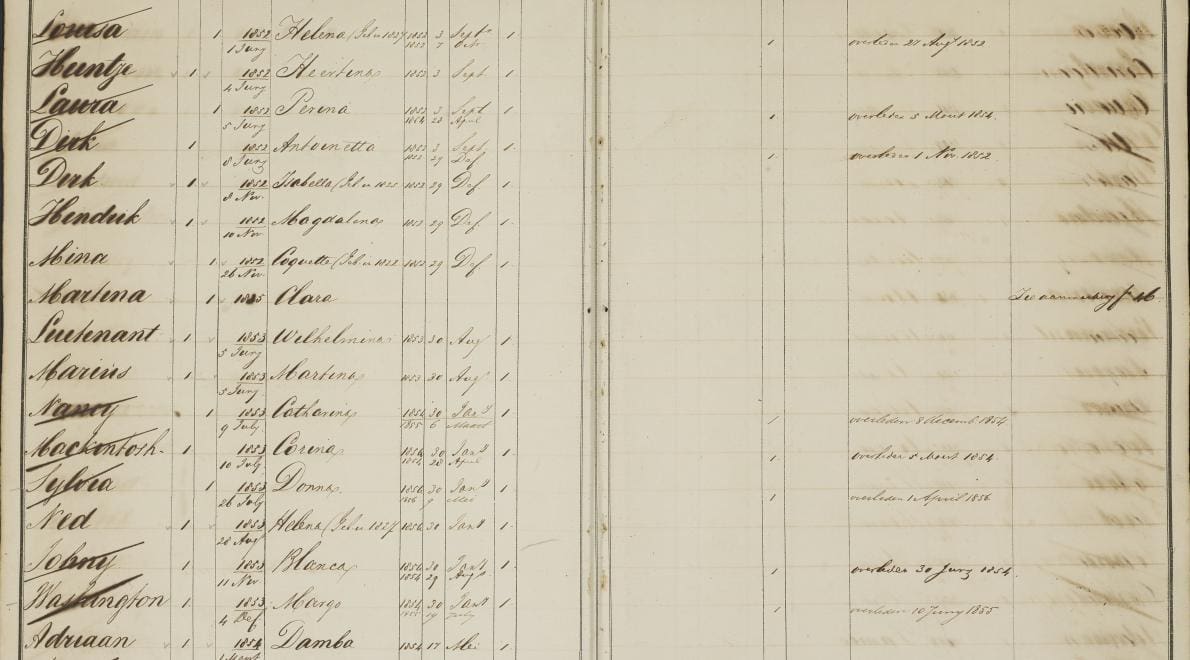 Louisa 1 1852 Helena (Geb. in 1827 1852 3 Sept 1
1 Juny 1852 7 Oct 1 overleden 27 Augt 1852
Huntje 1 1852 Heertina 1852 3 Sept 1
4 Juny
Laura 1 1852 Perina 1852 3 Sept 1
5 Juny 1854 28 April 1 overleden 5 Maart 1854
Dirk 1 1852 Antoinetta 1852 3 Sept 1
8 Juny 1852 29 Def 1 overleden 1 Nov. 1852
Derk 1 1852 Isabella (Geb. in 1825 1852 29 Def 1
8 Nov.
Hendrik 1 1852 Magdalena 1852 29 Def 1
10 Nov
Mina 1 1852 Coquette (Geb. in 1822 1852 29 Def. 1
26 Nov.
Martina 1 Clara
Luetenant 1 1853 Wilhelmina 1853 30 Aug 1
5 Juny
Marius 1 1853 Martina 1853 30 Aug 1
5 Juny
Nancy 1 1853 Catharina 1854 30 Jany 1
9 July 1855 6 Maart 1 overleden 8 decemb 1854
Mackintosh 1 1853 Corina 1854 30 Jany 1
10 July 1854 28 April 1 overleden 5 Maart 1854.
Sylvia 1 1853 Donna 1854 30 Jany 1
26 July 1856 9 Mei 1 overleden 1 April 1856
Ned 1 1853 Helena (Geb. in 1827 1854 30 Jany 1
28 Augt
Johny 1 1853 Blanca 1854 30 Jany 1
11 Nov 1854 29 Augs 1 overleden 30 Juny 1854
Washington 1 1853 Margo 1854 30 Jany 1
4 Def 1855 19 July 1 overleden 10 Juny 1855
Adriaan 1 1854 Damba 1854 17 Mei 1
1 Maart